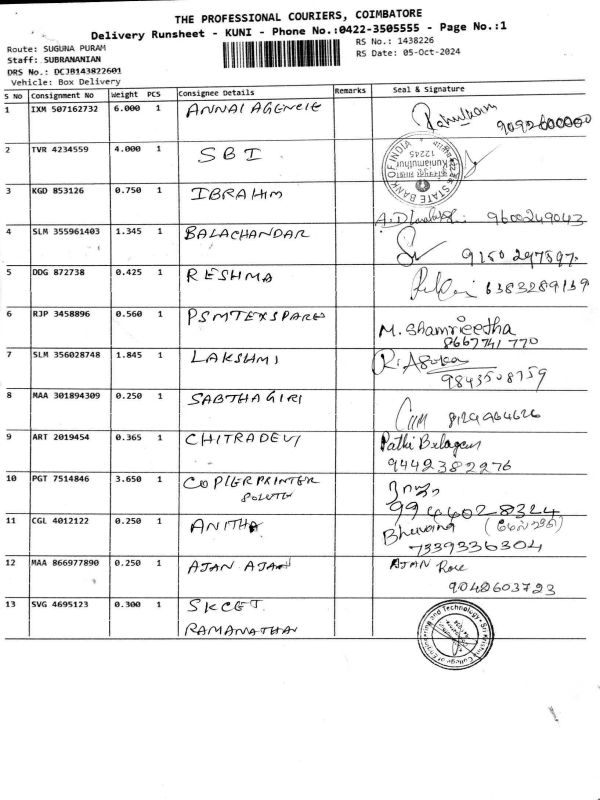 THE PROFESSIONAL COURIERS, COIMBATORE
Delivery Runsheet - KUNI - Phone No.:0422-3505555 - Page No.:1
Route: SUGUNA PURAM RS No.: 1438226
Staff: SUBRANANIAN RS Date: 05-Oct-2024
DRS No.: DCJB143822601
Vehicle: Box Delivery
S No Consignment No Weight PCS Consignee Details Remarks Seal & Signature
1 IXM 507162732 6.000 1 ANNAI AGENCIE
2 TVR 4234559 4.000 1 SBI
STATE BANK OF INDIA
12245
Kuniamuthur
3 KGD 853126 0.750 1 IBRAHIM 9600249043
4 SLM 355961403 1.345 1 BALACHANDAR
5 DDG 872738 0.425 1 RESHMA 6383289139
6 RJP 3458896 0.560 1 PSMTEXSPARES M. Shamrieetha
8667741 770
7 SLM 356028748 1.845 1 LAKSHMI
9843508759
8 MAA 301894309 0.250 1 SABTHAGIRI
9 ART 2019454 0.365 1 CHITRADEVI
9442382276
10 PGT 7514846 3.650 1 COPIERPRINTER
9944028324
11 CGL 4012122 0.250 1 ANITHA Bhuvana
7339336304
12 MAA 866977890 0.250 1 AJAN AJAN AJAN Rose
9048603723
13 SVG 4695123 0.300 1 SKCET
RAMANATHAN
Sri Krishna College of Engineering and Technology